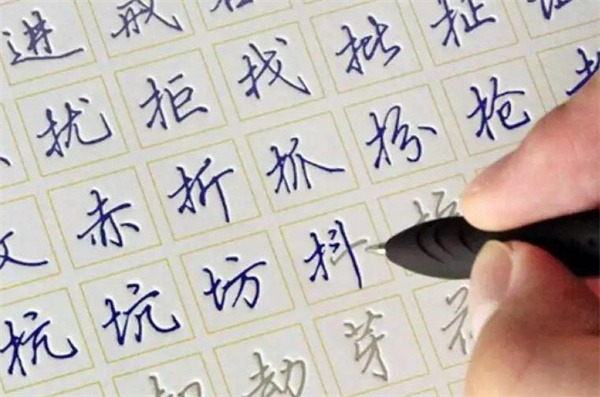 进戒
扰拒找批扯
赤折抓扮抢
抗坑坊抖
劫芽